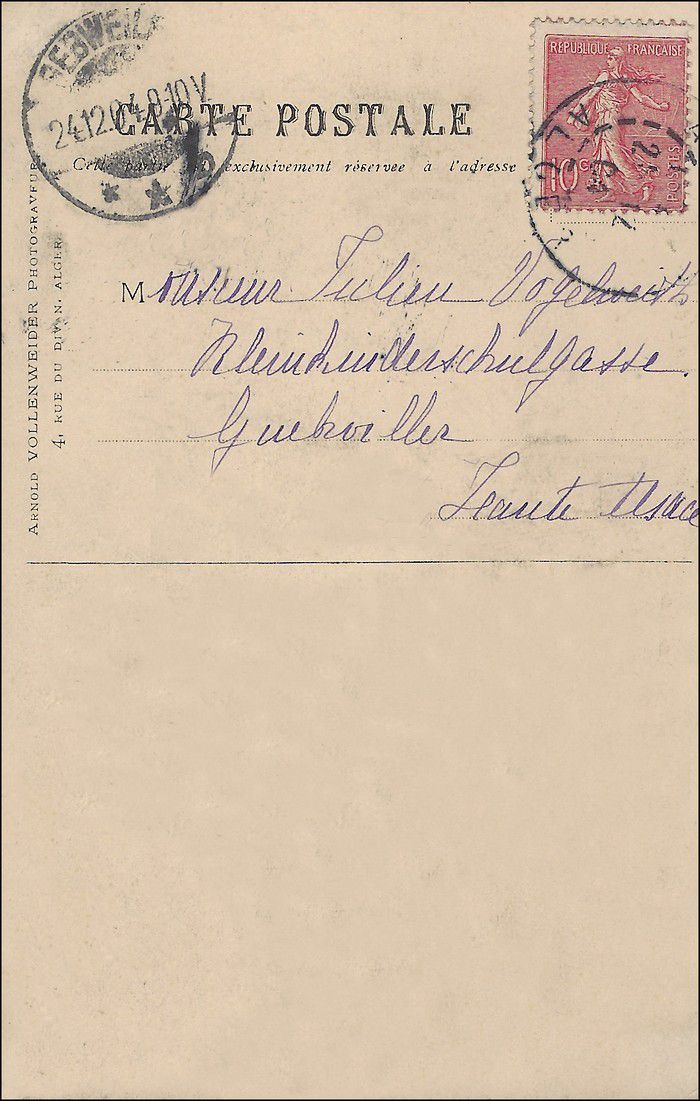 GEBWEILER
24.12.04.9-10V.
CARTE POSTALE
Cette partie est exclusivement réservée à l'adresse
RÉPUBLIQUE FRANÇAISE
10 C
POSTES
ALGER
Monsieur Julien Vogelweith
Kleinkinderschulgasse.
Guebviller
Haute Alsace
ARNOLD VOLLENWEIDER PHOTOGRAVEUR
4, RUE DU DIVAN. ALGER.